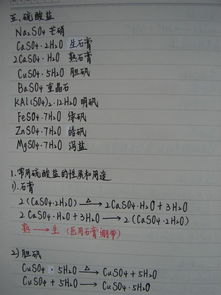 五. 硫酸盐
Na₂SO₄ 芒硝
CaSO₄·2H₂O 生石膏
2CaSO₄·H₂O 熟石膏
CuSO₄·5H₂O 胆矾
BaSO₄ 重晶石
KAl(SO₄)₂·12H₂O 明矾
FeSO₄·7H₂O 绿矾
ZnSO₄·7H₂O 皓矾
MgSO₄·7H₂O 泻盐
1. 常用硫酸盐的性质和用途
1). 石膏
2(CaSO₄·2H₂O) △→ 2CaSO₄·H₂O + 3H₂O
2CaSO₄·H₂O + 3H₂O → 2(CaSO₄·2H₂O)
熟→生 (医用石膏绷带)
2) 胆矾
CuSO₄·5H₂O △→ CuSO₄ + 5H₂O
CuSO₄ + 5H₂O → CuSO₄·5H₂O